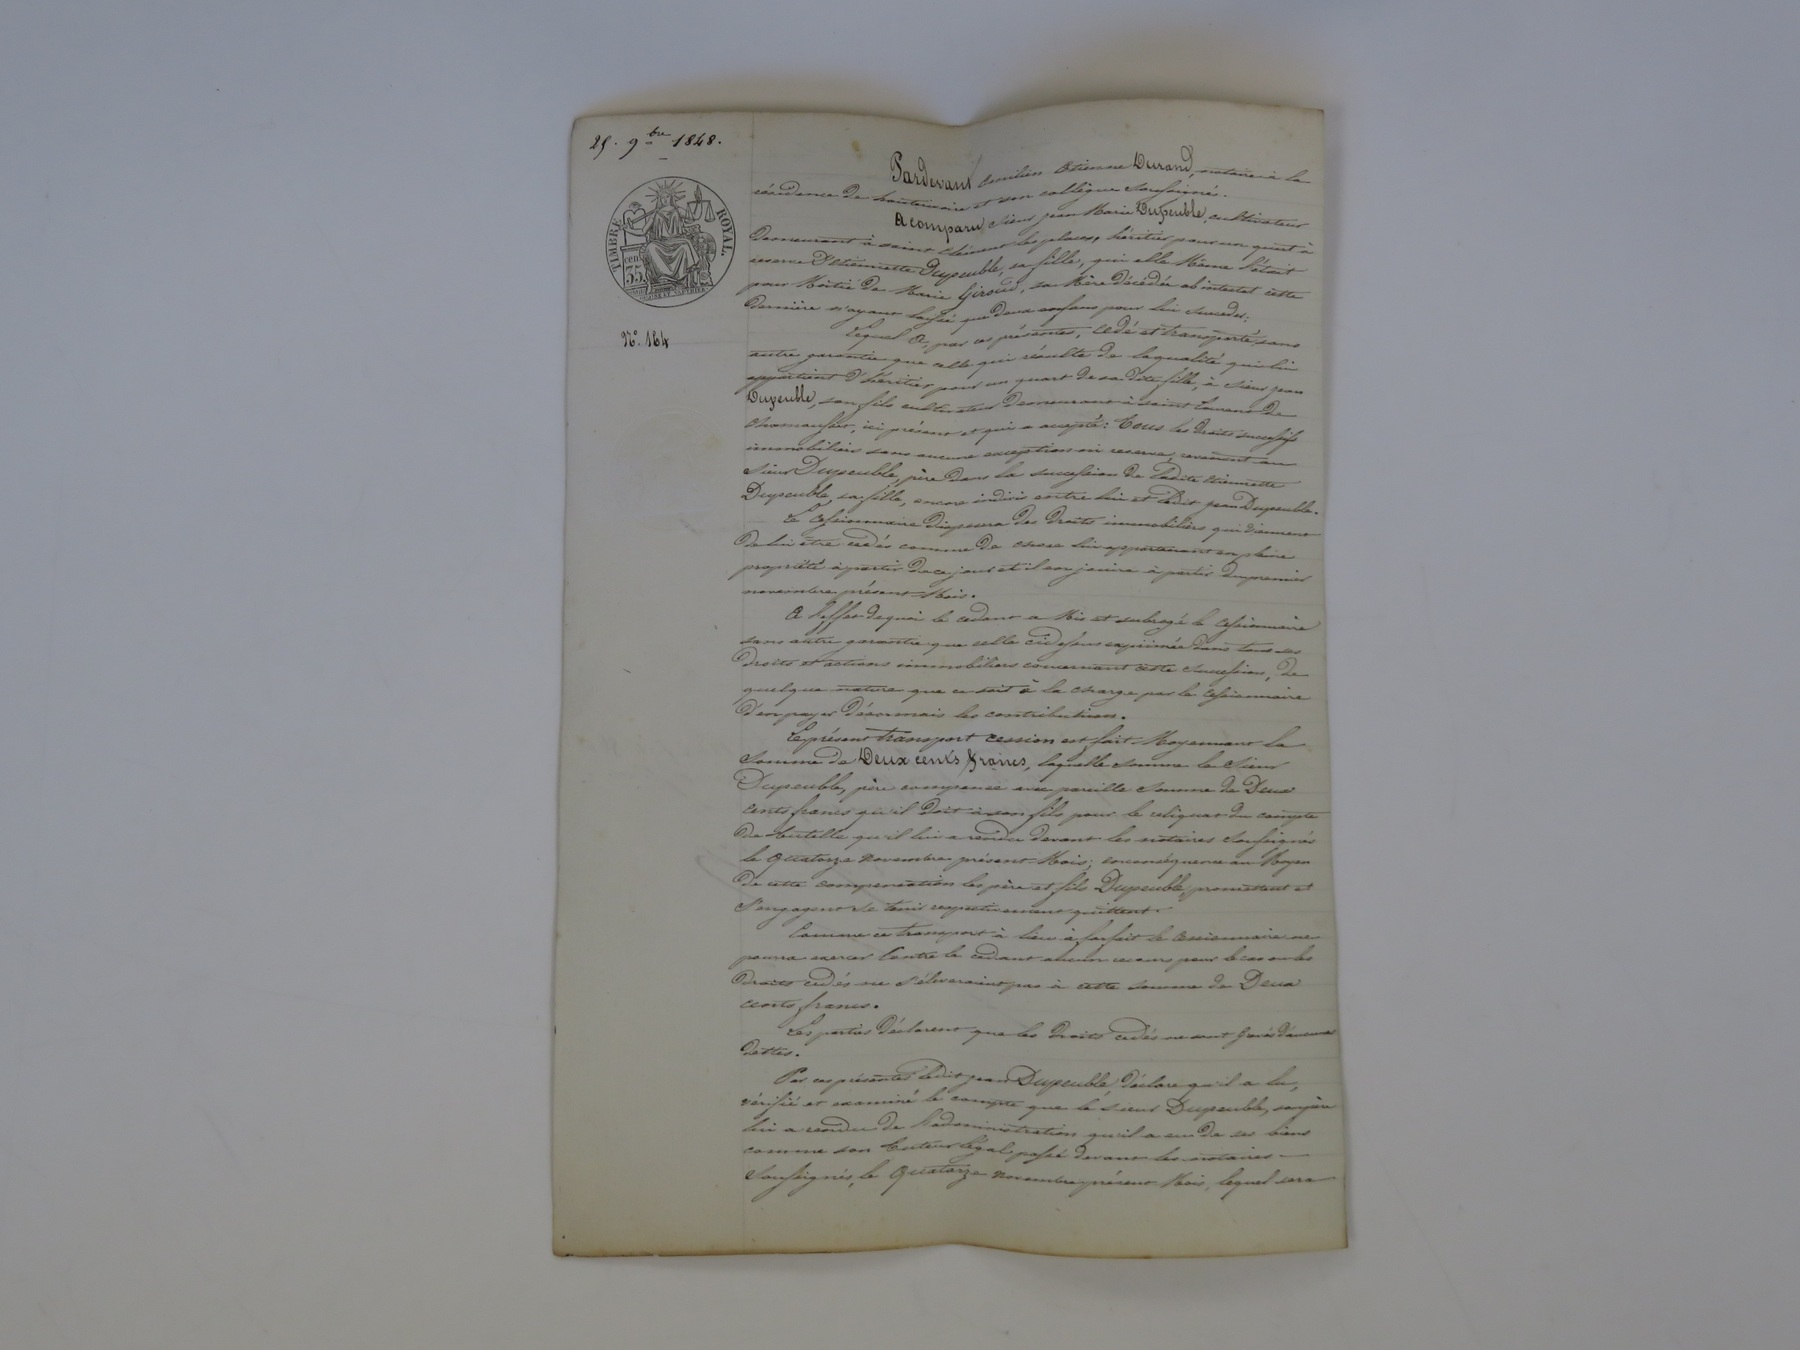 25. 9bre 1848.
TIMBRE ROYAL.
cen. 35
No. 164
Pardevant Emilien Etienne Durand, notaire à la
résidence de et son collègue Soussignés.
A comparu, Sieur Jean Marie Dupeuble, cultivateur
Demeurant à saint Clément les places, héritier pour un quart à
reserve D'Etiennette Dupeuble, sa fille, qui elle Même l'était
pour Moitié de Marie Giroud, sa Mère Décédée ab intestat cette
Dernière n'ayant laissé que deux enfans pour lui succeder;
Lequel a, par ces présentes, cédé et transporté sans
autre garantie que celle qui résulte de la qualité qui lui
appartient d'héritier pour un quart de sa dite fille, à Sieur Jean
Dupeuble, son fils cultivateur Demeurant à saint Laurent de
Chamousset, ici présent et qui a accepté: Tous les droits successifs
immobiliers sans aucune exception ni reserve, revenant au
Sieur Dupeuble, père Dans la succession de ladite Etiennette
Dupeuble, sa fille, encore indivis entre lui et ledit Jean Dupeuble.
Le Cessionnaire disposera des droits immobiliers qui viennent
de lui être cédés comme de chose lui appartenant en pleine
propriété à partir de ce jour et il en jouira à partir du premier
novembre présent Mois.
A l'effet de quoi le cédant a Mis et subrogé le Cessionnaire
sans autre garantie que celle cidessus exprimée dans tous ses
droits et actions immobiliers concernant cette Succession, de
quelque nature que ce soit à la charge par le Cessionnaire
d'en payer désormais les contributions.
Le présent transport cession est fait Moyennant la
Somme de Deux cents francs, laquelle somme le Sieur
Dupeuble, père compense avec pareille Somme de Deux
cents francs qu'il doit à son fils pour le reliquat du compte
de tutelle qu'il lui a rendu devant les notaires Soussignés
le Quatorze novembre présent Mois; en conséquence au Moyen
de cette compensation les père et fils Dupeuble, promettent et
s'engagent se tenir respectivement quittent.
Comme ce transport à lieu à forfait le Cessionnaire ne
pourra exercer Contre le cédant aucun recours pour le cas ou les
droits cédés ne s'éleveraient pas à cette somme de Deux
cents francs.
Les parties déclarent que les droits cédés ne sont Grevés d'aucunes
dettes.
Par ces présentes ledit Jean Dupeuble déclare qu'il a lu,
vérifié et examiné le compte que le Sieur Dupeuble, son père
lui a rendu de l'administration qu'il a eu de ses biens
comme son tuteur légal, passé devant les notaires
Soussignés, le Quatorze novembre présent Mois, lequel sera